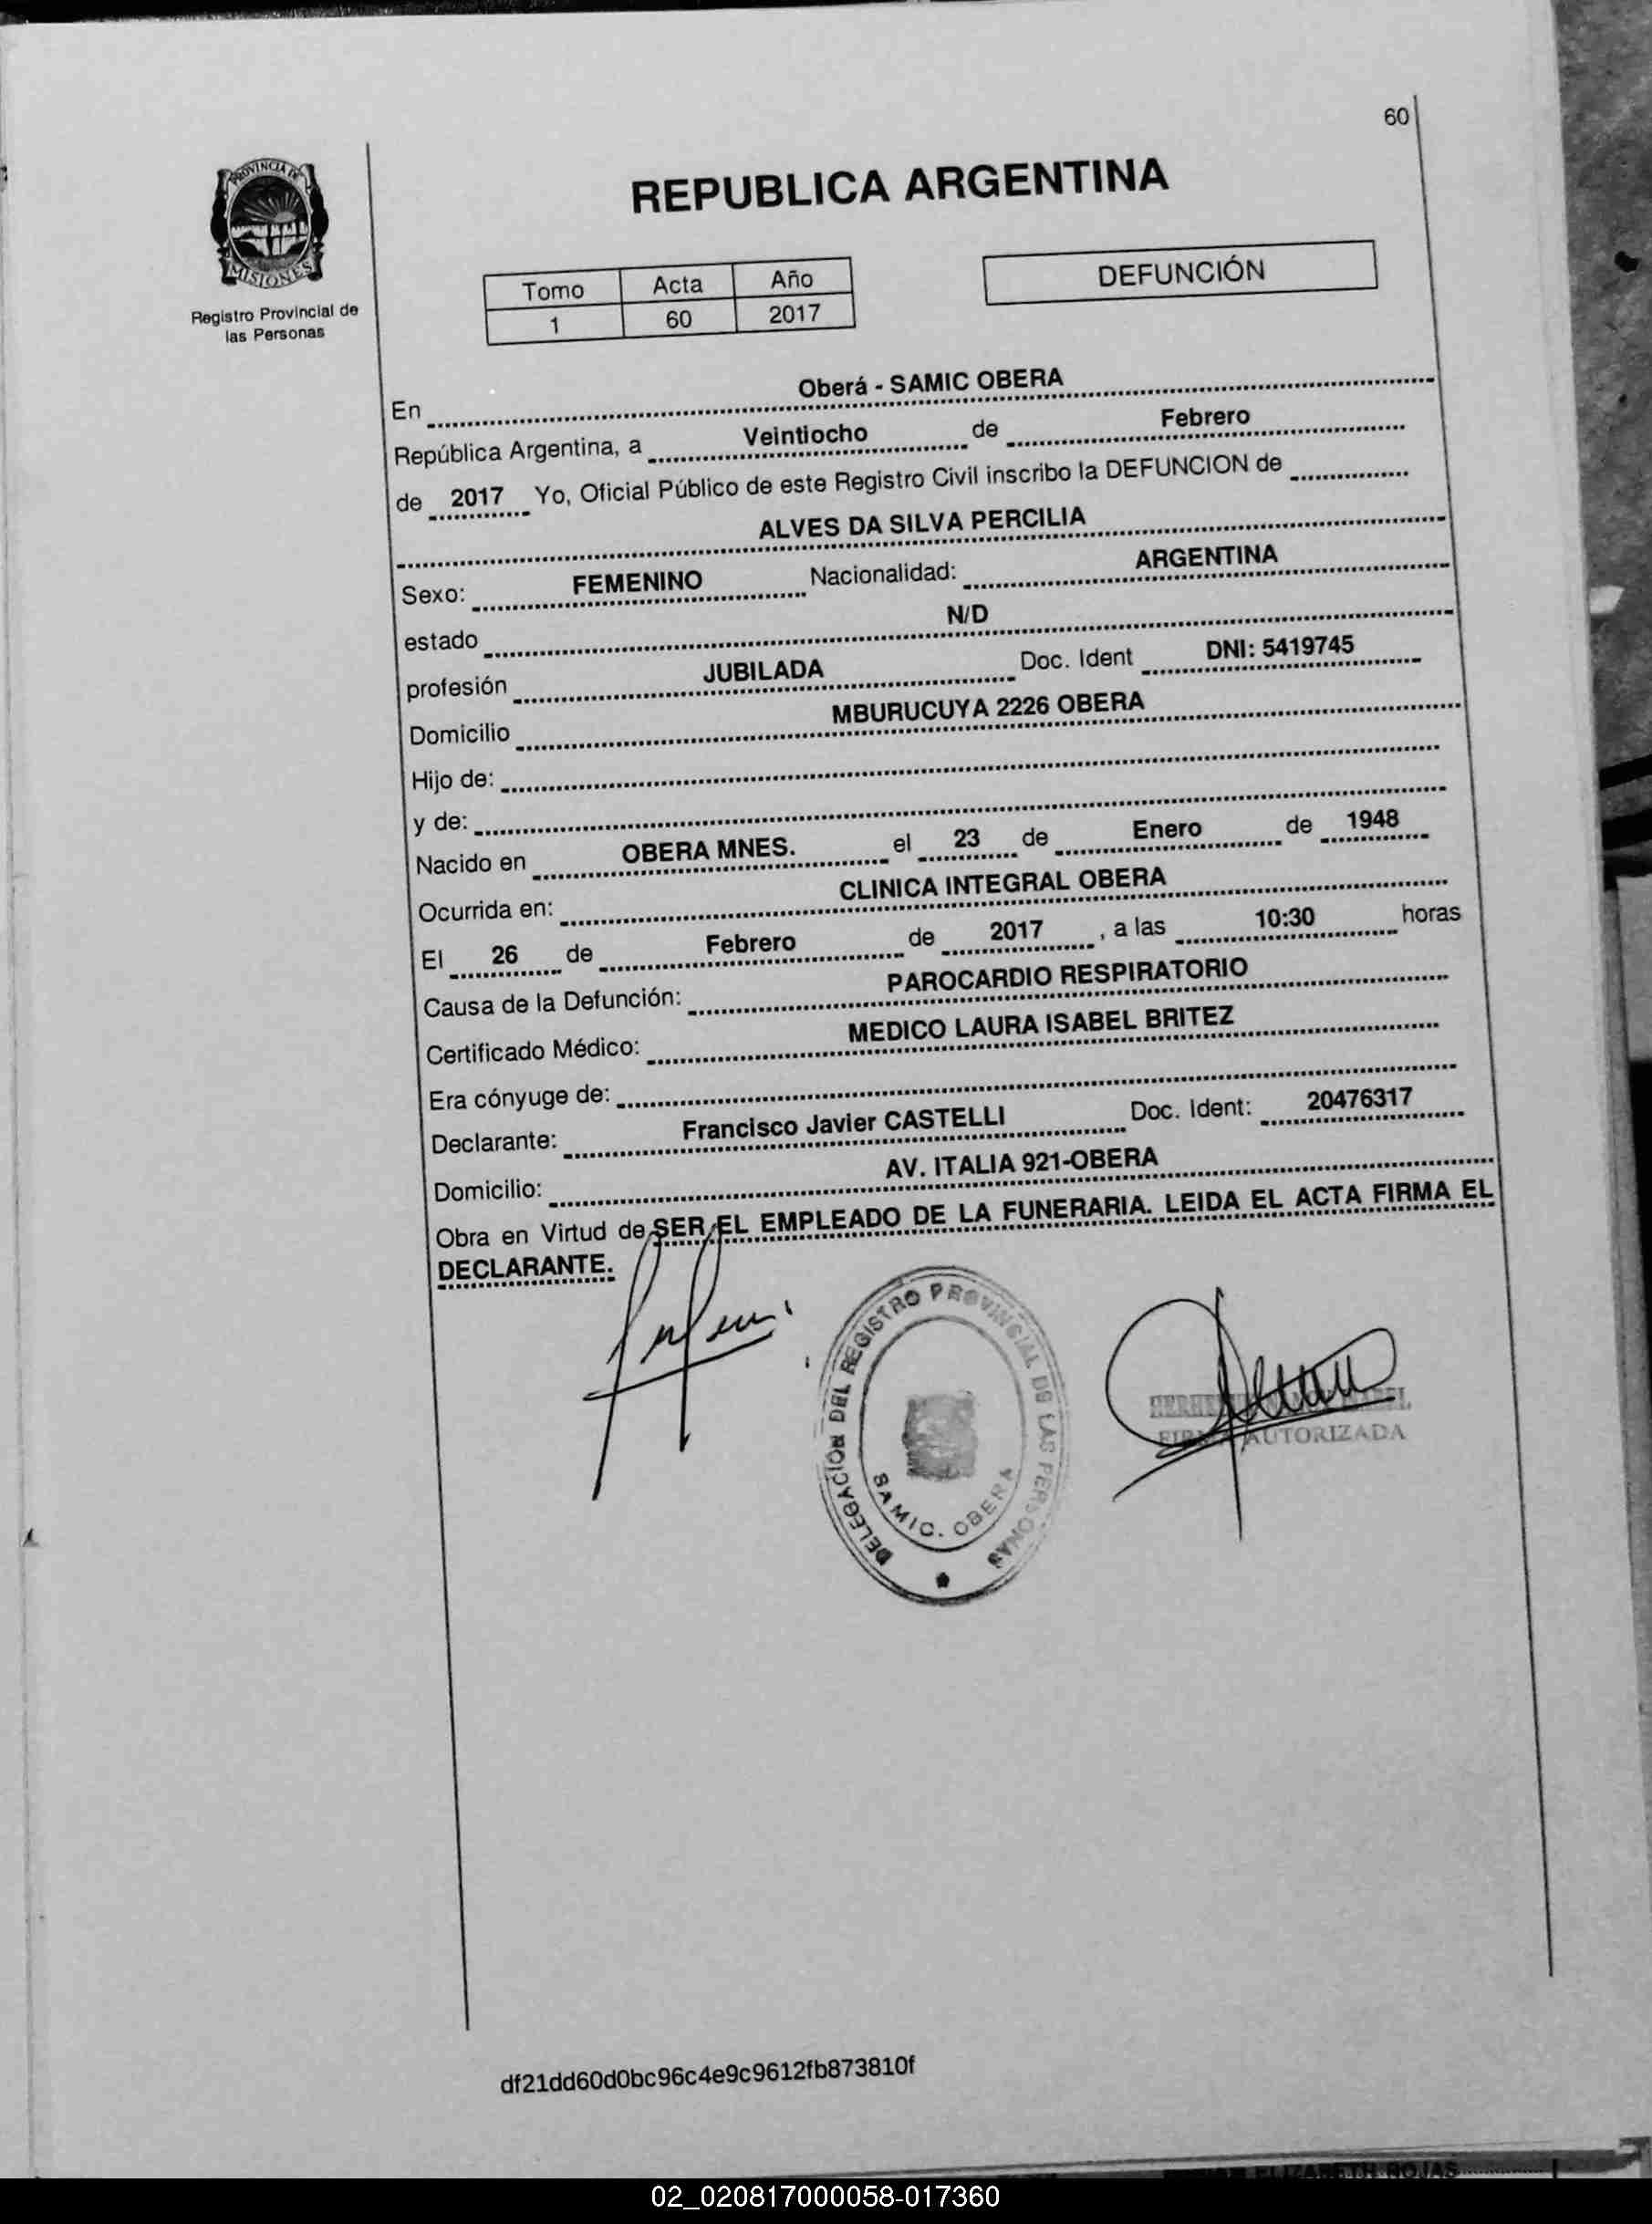 60
PROVINCIA DE
MISIONES
Registro Provincial de
las Personas
REPUBLICA ARGENTINA
Tomo Acta Año
1 60 2017
DEFUNCIÓN
En Oberá - SAMIC OBERA
República Argentina, a Veintiocho de Febrero
de 2017 Yo, Oficial Público de este Registro Civil inscribo la DEFUNCION de
ALVES DA SILVA PERCILIA
Sexo: FEMENINO Nacionalidad: ARGENTINA
estado N/D
profesión JUBILADA Doc. Ident DNI: 5419745
Domicilio MBURUCUYA 2226 OBERA
Hijo de:
y de:
Nacido en OBERA MNES. el 23 de Enero de 1948
Ocurrida en: CLINICA INTEGRAL OBERA
El 26 de Febrero de 2017 , a las 10:30 horas
Causa de la Defunción: PAROCARDIO RESPIRATORIO
Certificado Médico: MEDICO LAURA ISABEL BRITEZ
Era cónyuge de:
Declarante: Francisco Javier CASTELLI Doc. Ident: 20476317
Domicilio: AV. ITALIA 921-OBERA
Obra en Virtud de SER EL EMPLEADO DE LA FUNERARIA. LEIDA EL ACTA FIRMA EL
DECLARANTE.
DELEGACION DEL REGISTRO PROVINCIAL DE LAS PERSONAS
SAMIC. OBERA
FIRMA AUTORIZADA
df21dd60d0bc96c4e9c9612fb873810f
ELIZABETH ROJAS
02_020817000058-017360